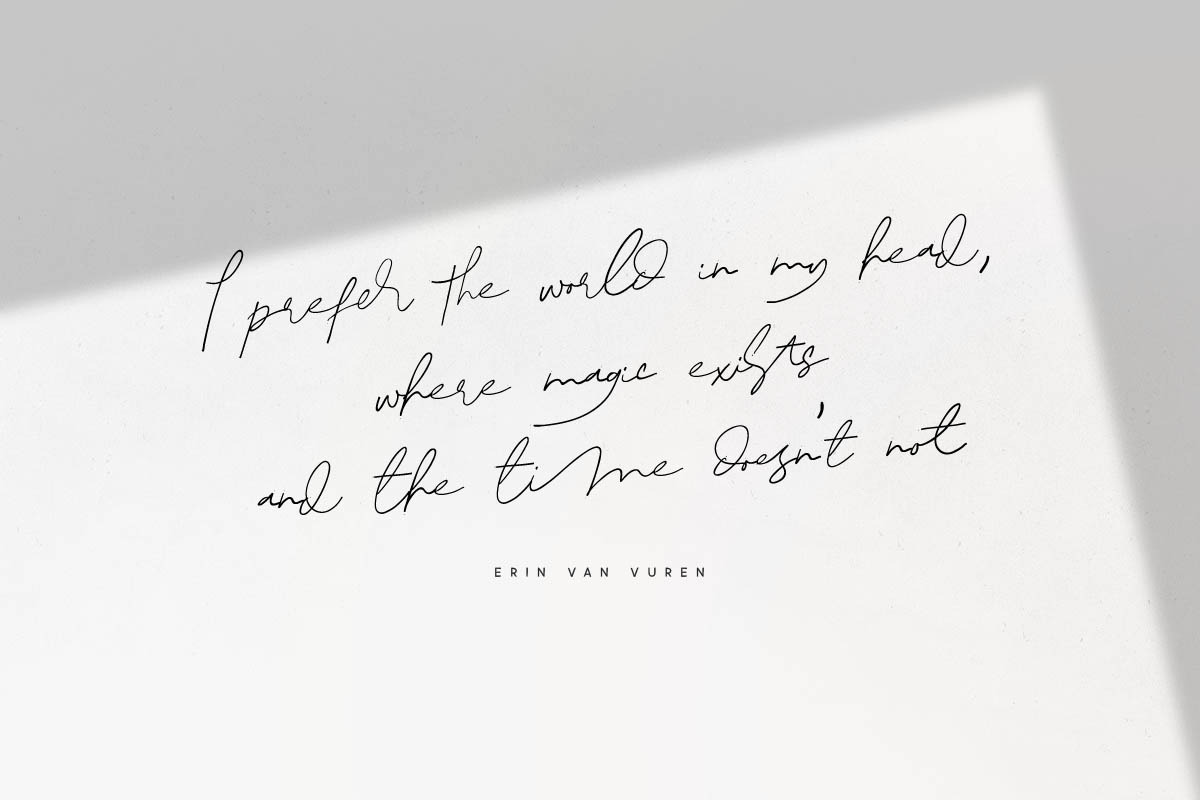 I prefer the world in my head,
where magic exists
and the time doesn't not
ERIN VAN VUREN